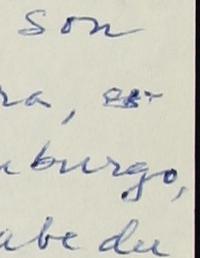 son
ra,
burgo,
abe du